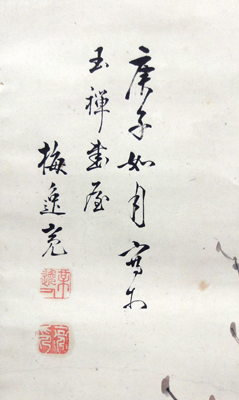 庚子如月寫於
玉禅書屋
梅逸亮